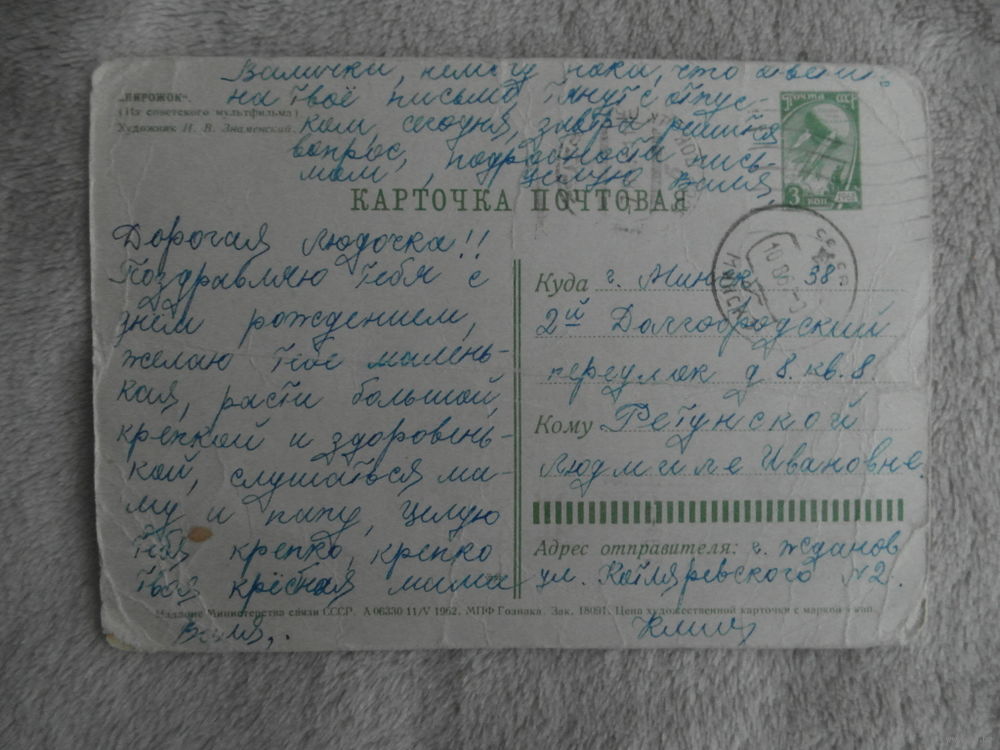 немогу пока, что
на твоё письмо, тянут с отпус-
ком, сегодня, завтра решится
вопрос, подробности пись-
мом, целую Валя,
„ПИРОЖОК“.
(Из советского мультфильма)
Художник Н. В. Знаменский.
ПОЧТА СССР
3 КОП
КАРТОЧКА ПОЧТОВАЯ
Дорогая Людочка!!
Поздравляю тебя с
днём рождением,
желаю тебе малень-
кая, расти большой,
крепкой и здоровень-
кой, слушаться ма-
му и папу, целую
тебя крепко, крепко
твоя крёсная мама
Валя,.
СССР
МИНСК
Куда г. Минск 38
2й Долгобродский
переулок д 8. кв. 8.
Кому Ретунской
Людмиле Ивановне
Адрес отправителя: г. Жданов
ул. Котляревского №2.
Клищ
Издание Министерства связи СССР. А 06330 11/V 1962. МПФ Гознака. Зак. 18091. Цена художественной карточки с маркой коп.